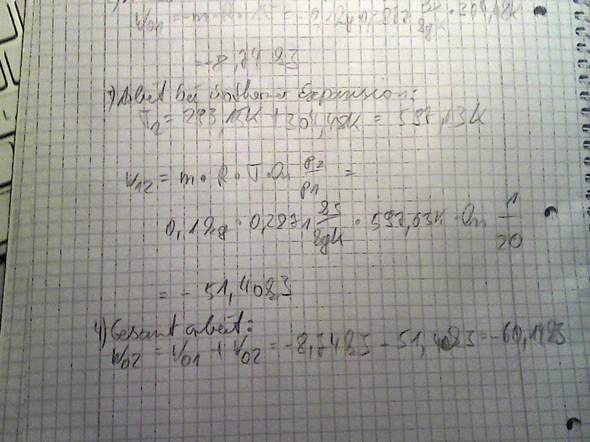 W01 = -m · R · = 0,1kg · 0,287 kJ/kgK · 304,48K
= -8,74kJ
3) Arbeit bei isotherme Expansion:
T2 = 293,15K + 304,48K = 597,63K
W12 = m · R · T · ln p2/p1 =
0,1kg · 0,2871 kJ/kgK · 597,63K · ln 1/20
= -51,40kJ
4) Gesamtarbeit:
W02 = W01 + W02 = -8,74kJ - 51,40kJ = -60,14kJ